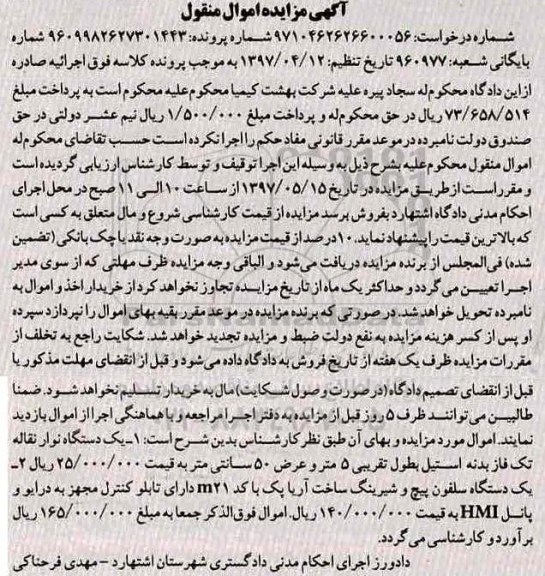 آگهی مزایده اموال منقول
شماره درخواست: ۹۷۱۰۴۶۲۶۲۶۶۰۰۰۵۶ شماره پرونده: ۹۶۰۹۹۸۲۶۲۷۳۰۱۴۴۳ شماره
بایگانی شعبه: ۹۶۰۹۷۷ تاریخ تنظیم: ۱۳۹۷/۰۴/۱۲ به موجب پرونده کلاسه فوق اجرائیه صادره
از این دادگاه محکوم له سجاد پیره علیه شرکت بهشت کیمیا محکوم علیه محکوم است به پرداخت مبلغ
۷۳/۶۵۸/۵۱۴ ریال در حق محکوم له و پرداخت مبلغ ۱/۵۰۰/۰۰۰ ریال نیم عشر دولتی در حق
صندوق دولت نامبرده در موعد مقرر قانونی مفاد حکم را اجرا نکرده است حسب تقاضای محکوم له
اموال منقول محکوم علیه بشرح ذیل به وسیله این اجرا توقیف و توسط کارشناس ارزیابی گردیده است
و مقرر است از طریق مزایده در تاریخ ۱۳۹۷/۰۵/۱۵ از ساعت ۱۰ الی ۱۱ صبح در محل اجرای
احکام مدنی دادگاه اشتهارد بفروش برسد مزایده از قیمت کارشناسی شروع و مال متعلق به کسی است
که بالاترین قیمت را پیشنهاد نماید. ۱۰ درصد از قیمت مزایده به صورت وجه نقد یا چک بانکی (تضمین
شده) فی المجلس از برنده مزایده دریافت می شود و الباقی وجه مزایده ظرف مهلتی که از سوی مدیر
اجرا تعیین می گردد و حداکثر یک ماه از تاریخ مزایده تجاوز نخواهد کرد از خریدار اخذ و اموال به
نامبرده تحویل خواهد شد. در صورتی که برنده مزایده در موعد مقرر بقیه بهای اموال را نپردازد سپرده
او پس از کسر هزینه مزایده به نفع دولت ضبط و مزایده تجدید خواهد شد. شکایت راجع به تخلف از
مقررات مزایده ظرف یک هفته از تاریخ فروش به دادگاه داده می شود و قبل از انقضای مهلت مذکور یا
قبل از انقضای تصمیم دادگاه (در صورت وصول شکایت) مال به خریدار تسلیم نخواهد شود. ضمنا
طالبین می توانند ظرف ۵ روز قبل از مزایده به دفتر اجرا مراجعه و با هماهنگی اجرا از اموال بازدید
نمایند. اموال مورد مزایده و بهای آن طبق نظر کارشناس بدین شرح است: ۱ـ یک دستگاه نوار نقاله
تک فاز بدنه استیل بطول تقریبی ۵ متر و عرض ۵۰ سانتی متر به قیمت ۲۵/۰۰۰/۰۰۰ ریال ۲ـ
یک دستگاه سلفون پیچ و شیرینگ ساخت آریا پک با کد m۲۱ دارای تابلو کنترل مجهز به درایو و
پانل HMI به قیمت ۱۴۰/۰۰۰/۰۰۰ ریال. اموال فوق الذکر جمعا به مبلغ ۱۶۵/۰۰۰/۰۰۰ ریال
برآورد و کارشناسی می گردد.
دادورز اجرای احکام مدنی دادگستری شهرستان اشتهارد - مهدی فرحناکی